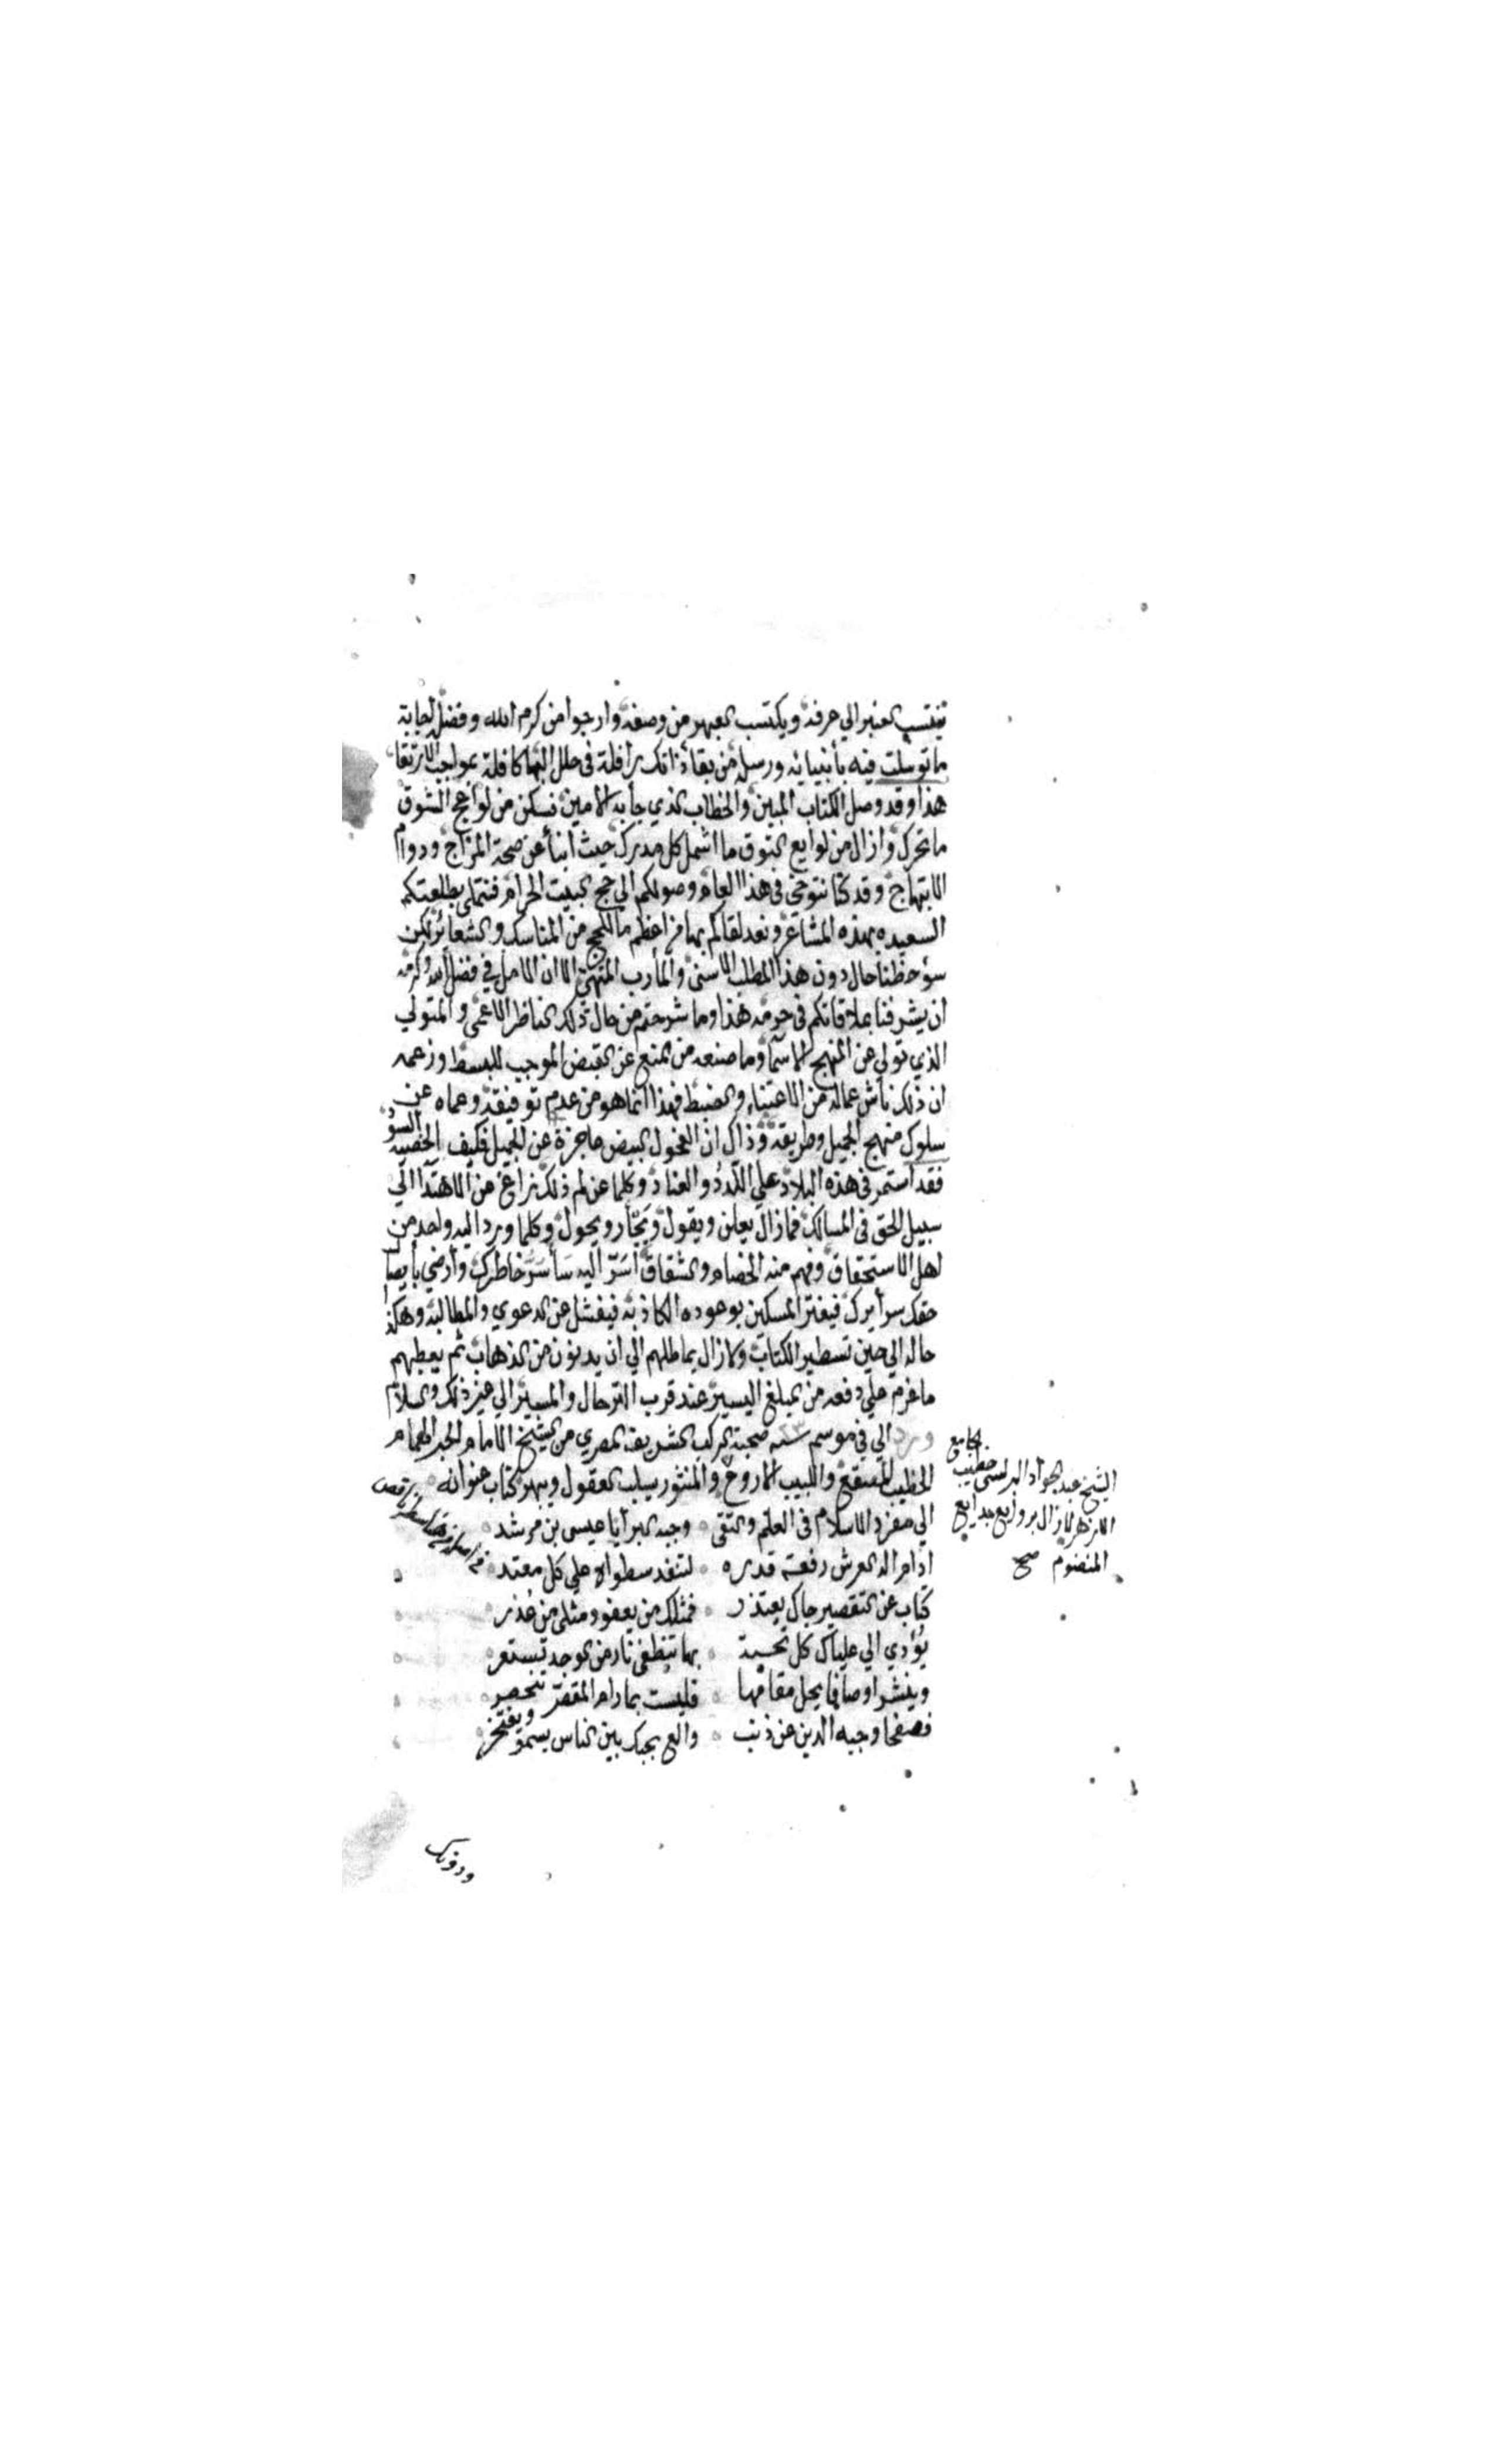 ينتسب العنبر الي عرفه ويكتسب العبهر من وصفه وارجوا من كرم الله وفضله اجابة
ما توسلت فيه بأنبيائه ورسله من بقاء ذاتك رافلة في حلل البها كافلة بمواجب الارتقا
هذا وقد وصل الكتاب المبين والخطاب الذي جاء به الامين فسكن من لواعج الشوق
ما تحرك وازال من لوايع التوق ما اشمل كل مدرك حيث انبأ عن صحة المزاج ودوام
الابتهاج وقد كنا نتوخى في هذا العام وصولكم الي حج البيت الحرام فنتملى بطلعتكم
السعيده بهذه المشاعر ونعد لقاكم بها من اعظم ما للحج من المناسك والشعائر لكن
سوء حظنا حال دون هذا المطلب الاسنى والمأرب المتهنى الا ان الامل في فضل الله وكرمه
ان يشرفنا بملاقاتكم في حرمه هذا وما شرحتم من حال ذلك الناظر الاعمى والمتولي
الذي تولي عن المنهج الاسما وما صنعه من المنع عن القبض الموجب للبسط وزعمه
ان ذلك ناش عماله من الاعتناء والضبط فهذا انما هو من عدم توفيقه وعماه عن
سلوك منهج الجميل وطريقه وذاك ان الفحول البيض عاجزة عن الجميل فكيف الخصية السود
فقد استمر في هذه البلاد علي اللدد والعناد وكلما عن لم ذلك زاغ عن الاهتدا الي
سبيل الحق في المسالك فمازال يعلن ويقول ويجأر ويحول وكلما ورد اليه واحد من
اهل الاستحقاق وفهم منه الخصام والشقاق اسر اليه سأسر خاطرك وأرضي بأيصال
حقك سرأيرك فيفتر المسكين بوعوده الكاذبة فيفشل عن الدعوي والمطالبة وهكذا
حاله الي حين تسطير الكتاب ولازال يماطلهم الي ان يدنون من الذهاب ثم يعطيهم
ما عزم علي دفعه من المبلغ اليسير عند قرب الترحال والمسير الي غير ذلك والسلام
ورد الي في موسم سنه صحبة الركب الشريف المصري من الشيخ الامام الحبر الهمام
الخطيب المصقع واللبيب الاروع والمنثور يسلب العقول ويبهر كتاب عنوانه
الشيخ عبد الجواد البرلسي خطيب الجامع
الازهر لازال بروايع بدايع
المنضوم صح
الي مفرد الاسلام في العلم والتقى وجيه البرايا عيسى بن مرشد
ادام اله العرش رفعة قدره لتنفد سطواه علي كل معتد
كتاب عن التقصير جاك يعتذر فمثلك من يعفو ومثلي من عذر
يؤدي الي علياك كل تحية بها تنطفى نار من الوجد تستعر
وينشر اوصافا يجل مقامها فليست بما رام المقصر تنحصر
فصفحا وجيه الدين عن ذنب والع بحبك بين الناس يسمو ويفتخر
ودونك